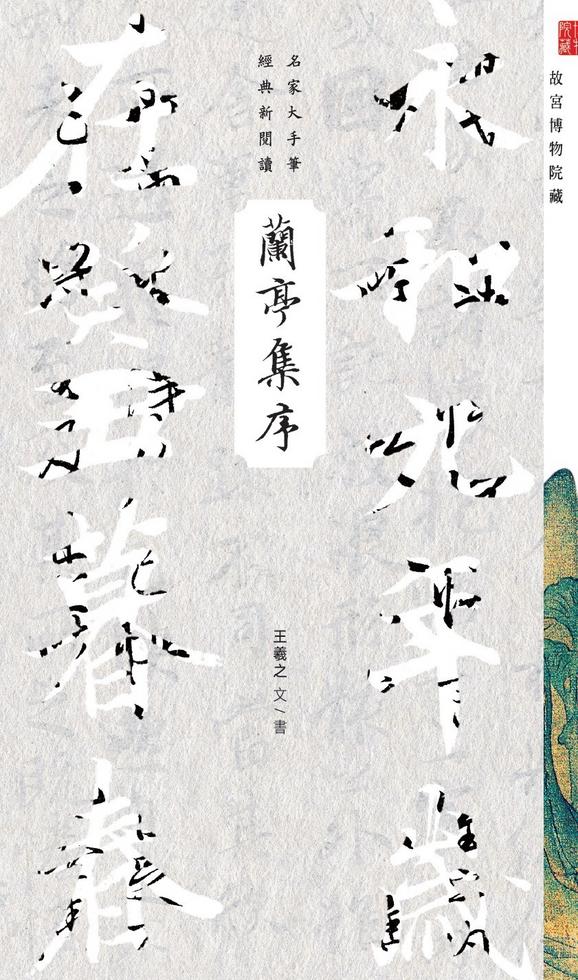 故宮博物院藏
永和九年歲
名家大手筆
經典新閱讀
蘭亭集序
王羲之 文/書
在癸丑暮春